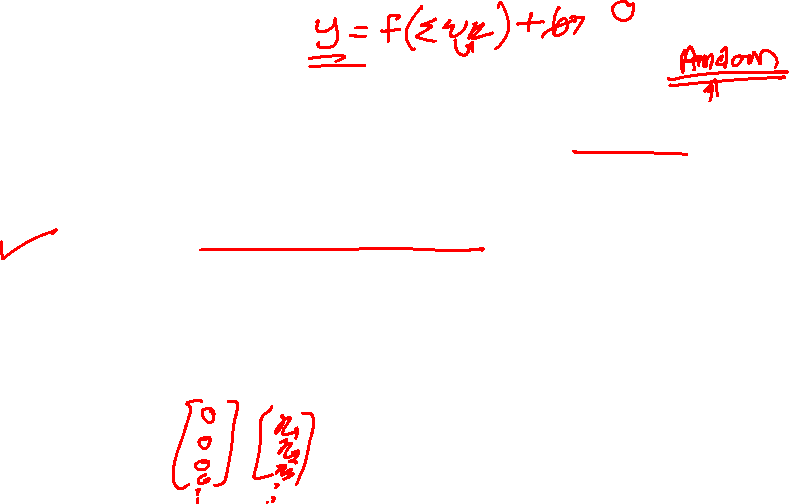 y = f(Σ w x) + b → 0
Random
[0 0 0 0 ⋮] [x₁ x₂ x₃ ⋮]